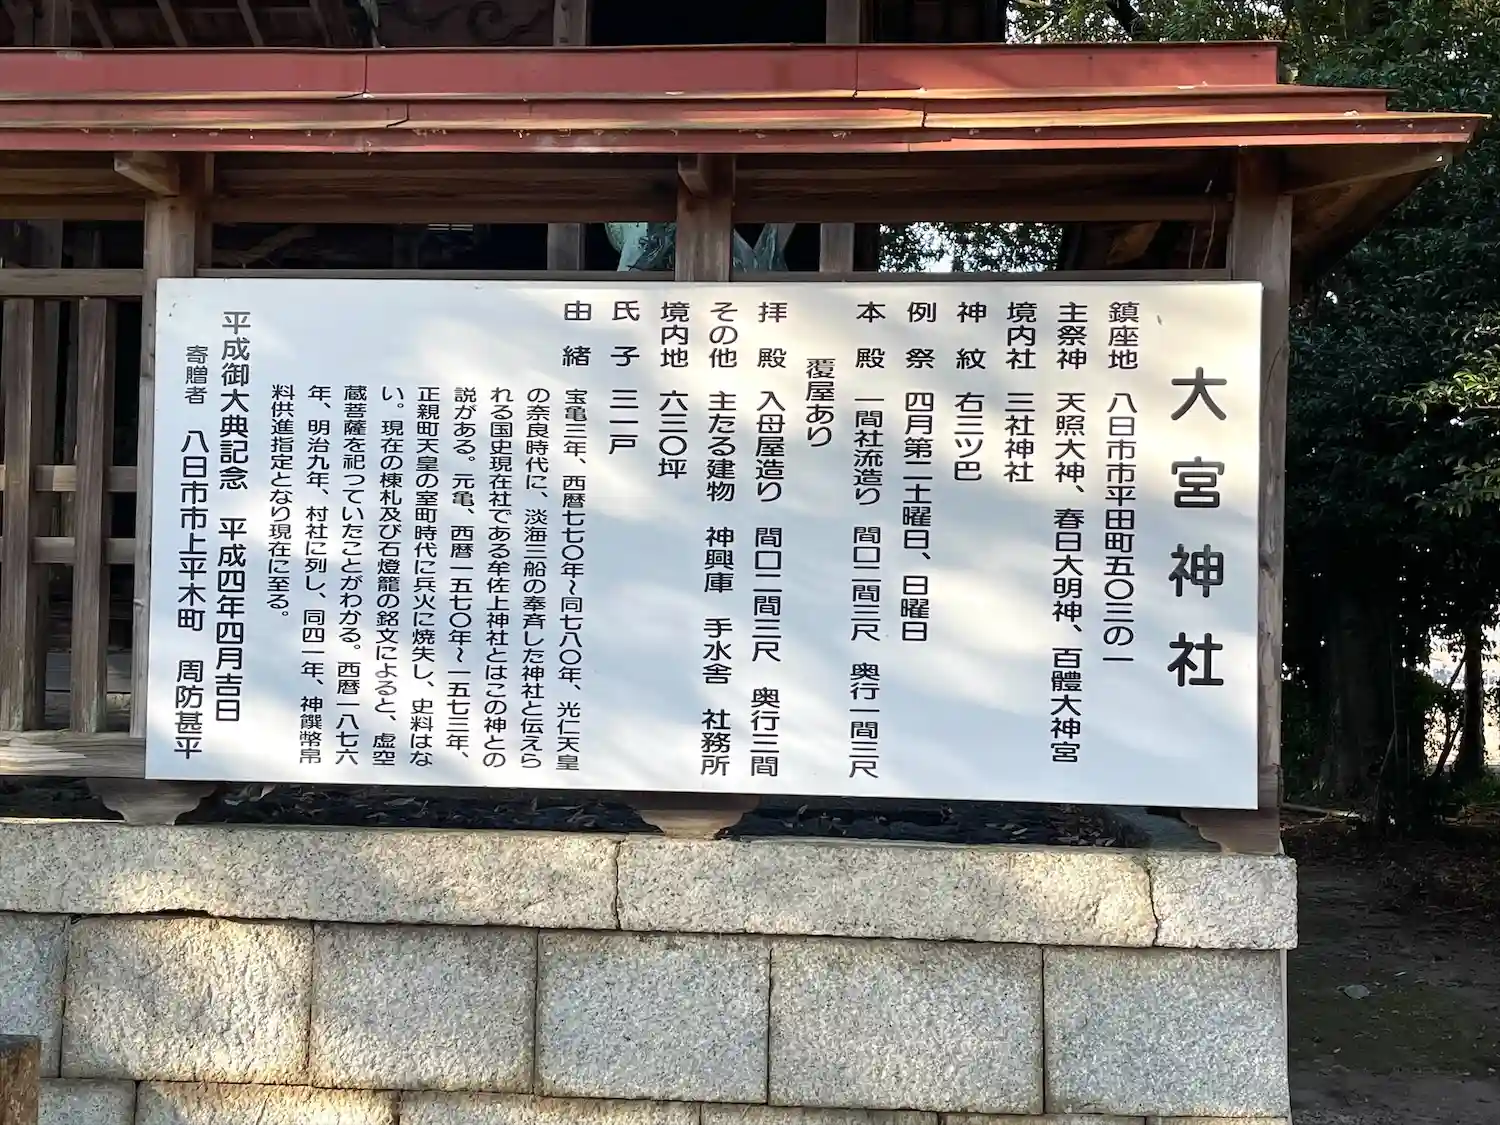 大宮神社
鎮座地　八日市市平田町五〇三の一
主祭神　天照大神、春日大明神、百體大神宮
境内社　三社神社
神紋　右三ツ巴
例祭　四月第二土曜日、日曜日
本殿　一間社流造り　間口二間三尺　奥行一間三尺
覆屋あり
拝殿　入母屋造り　間口二間三尺　奥行三間
その他　主たる建物　神興庫　手水舎　社務所
境内地　六三〇坪
氏子　三一戸
由緒　宝亀三年、西暦七七〇年〜同七八〇年、光仁天皇
の奈良時代に、淡海三船の奉斉した神社と伝えら
れる国史現在社である牟佐上神社とはこの神との
説がある。元亀、西暦一五七〇年〜一五七三年、
正親町天皇の室町時代に兵火に焼失し、史料はな
い。現在の棟札及び石燈籠の銘文によると、虚空
蔵菩薩を祀っていたことがわかる。西暦一八七六
年、明治九年、村社に列し、同四一年、神饌幣帛
料供進指定となり現在に至る。
平成御大典記念　平成四年四月吉日
寄贈者　八日市市上平木町　周防甚平